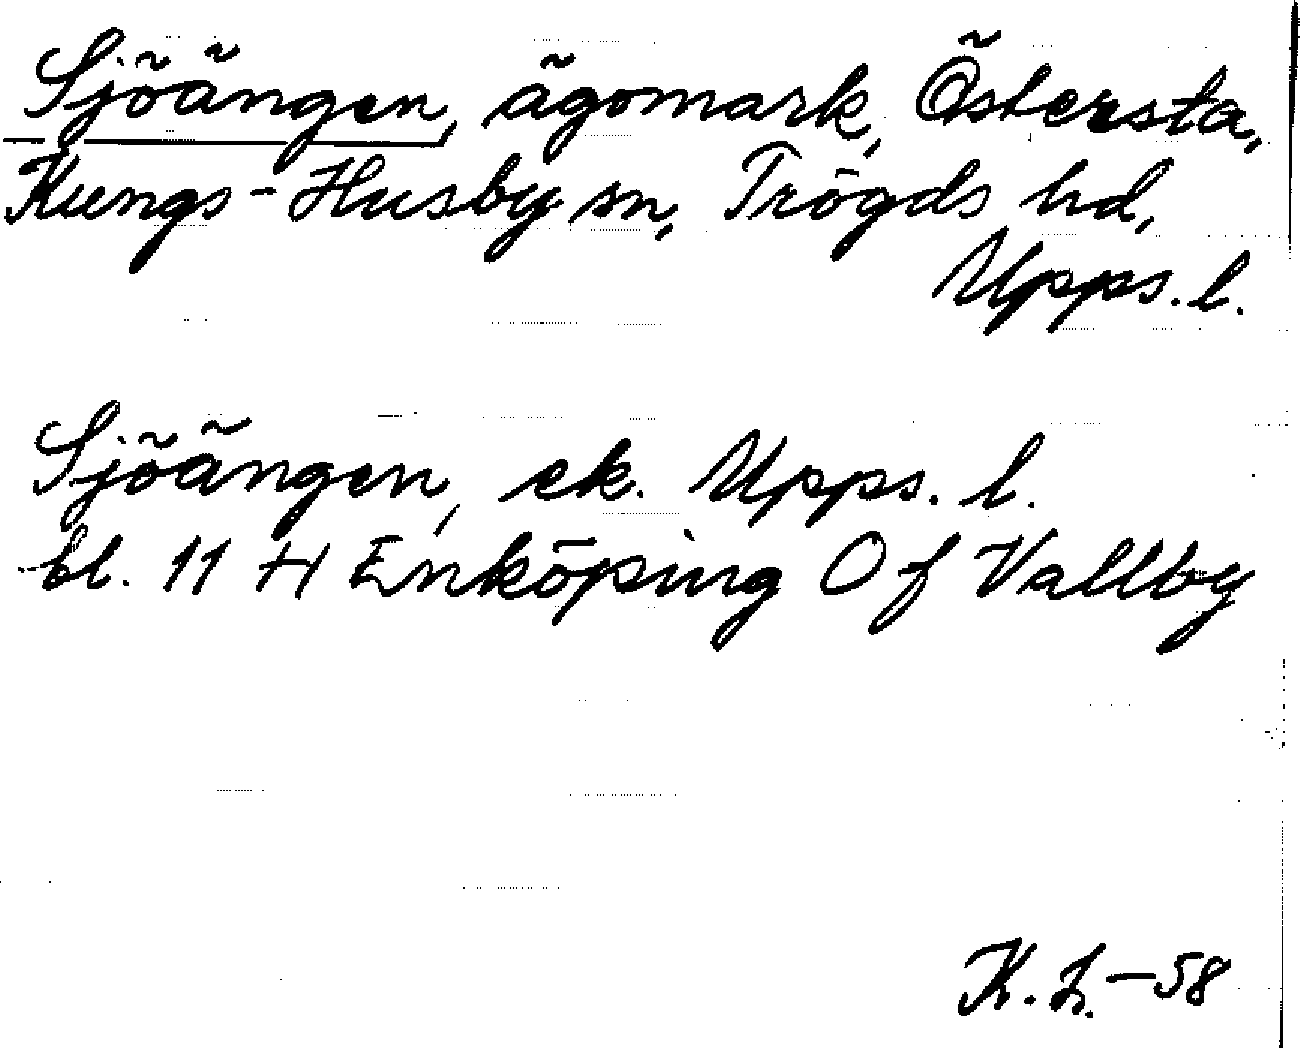 Sjöängen, ägomark, Östersta,
Kungs-Husby sn, Trögds hd,
Upps. l.
Sjöängen, ek. Upps. l.
bl. 11 H Enköping Of Vallby
K. L. -58